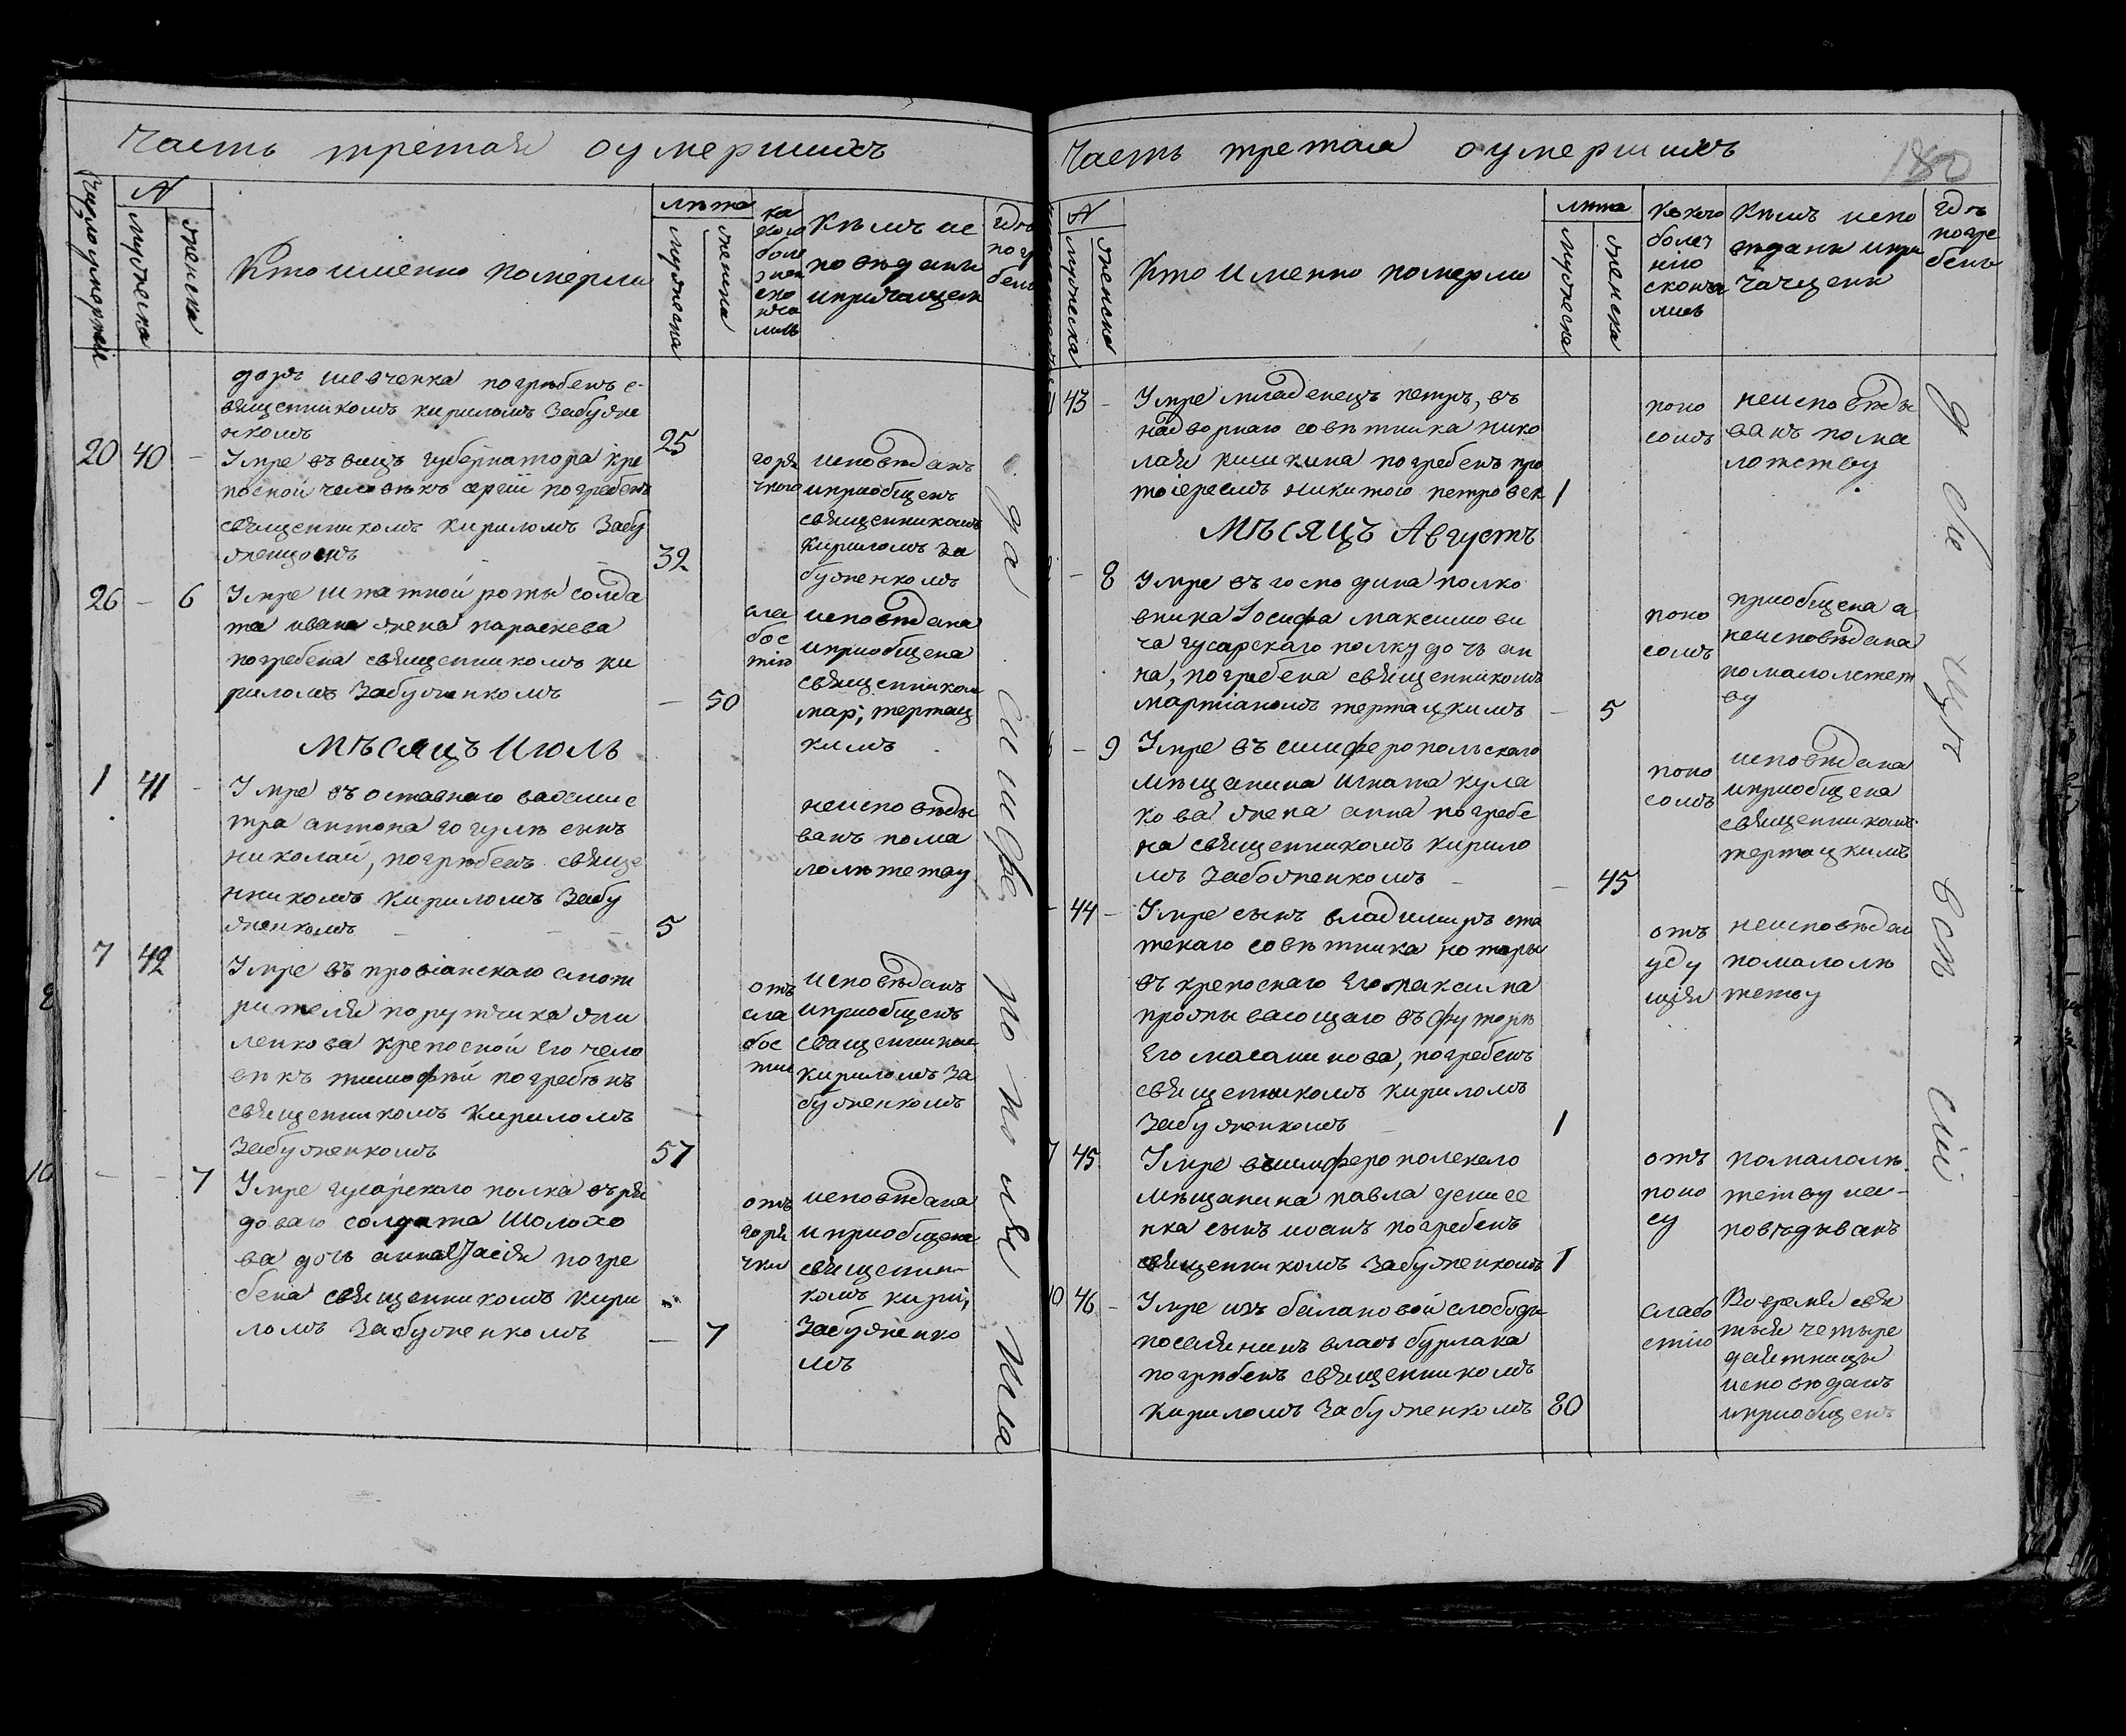 Часть третая оумершихъ
Число умертвій
N
мужеска
женска
Кто именно померли
лѣта
мужеска
женска
ка
кою
боле
знен
ско
нча
лись
Кѣмъ ис
повѣданы
и причащен
гдѣ
пог
бен
доръ шевченка погрѣбенъ с-
вященникомъ кириломъ Забужке
нкомъ
25
20 40 -
Умре въ вицъ губернатора кре
посной человѣкъ сергій погребенъ
священникомъ кириломъ Забу
32
горя
чкою
исповѣданъ
и приобщенъ
священникомъ
кириломъ за
буженкомъ
26 - 6
Умре штатной роты солда
та ивана жена параскева
погребена священникомъ ки
риломъ Забуженкомъ
- 50
сла
бос
тію
исповѣдана
и приобщена
священником
мар; тертац
кимъ
Мѣсяцъ Июль
1 41 -
Умре въ оставнаго вахмис
тра антона гогулѣ сынъ
николай, погрѣбенъ свяще
нникомъ кириломъ Забу
женкомъ
5
неисповѣды
ванъ пома
лолѣтству
7 42
Умре въ провіанскаго смот
рителя поручика жи
ленкова крепосной Его чело
вѣкъ тимофѣй погребѣнъ
священникомъ кириломъ
Забуженкомъ
57
отъ
сла
бос
ти
исповѣданъ
и приобщенъ
священником
кириломъ За
буженкомъ
- - 7
Умре гусарскаго полка въ ря
доваго солдата Шолохо
ва дочь анастасія погре
бена священникомъ кири
ломъ Забуженкомъ
- 7
отъ
горя
чки
исповѣдана
и приобщена
священни-
комъ кири;
Забуженко
мъ
да симфе рополя кла
Часть третая оумершихъ
180
N
мужеска
женска
Кто именно померли
лѣта
мужеска
женска
Какою
болез
нію
сконча
лись
Кѣмъ испо
ведани и при
чащени
Гдѣ
погре
бены
43 -
Умре младенецъ петръ, въ
надворнаго совѣтника нико
лая кишкина погребенъ про
тоіереемъ никитою петровск
1
поно
сомъ
неисповѣды
ванъ пома
лотству
Мѣсяцъ Августъ
- 8
Умре въ господина полко
вника Іосифа максимови
ча гусарскаго полку дочь ан
на, погребена священникомъ
мартіаномъ тертацкимъ
- 5
поно
сомъ
приобщена а
неисповѣдана
помалолетст
ву
- 9
Умре въ симферопольскаго
мѣщанина Игната кула
кова жена анна погребе
на священникомъ кирило
мъ Забоженкомъ
- 45
поно
сомъ
исповѣдана
и приобщена
священникомъ
тертацкимъ
- 44 -
Умре сынъ владимиръ ста
тскаго совѣтника нотары
въ крепоснаго Его максима
проживающаго въ футорѣ
Его масаникова, погребенъ
священникомъ кириломъ
Забуженкомъ
1
отъ
уду
шія
неисповѣдан
помалолѣ
тству
7 45
Умре в симферополскаго
мѣщанина павла денисе
нка сынъ иоанъ погребенъ
священникомъ Забуженкомъ
1
отъ
поно
су
помалолѣ
тству неис-
повѣдыванъ
10 46 -
Умре изъ балановой слободы
поселянинъ власъ бурлака
погрѣбенъ священникомъ
кириломъ Забуженкомъ
80
слабо
стію
Во время свя
тыя четыре
десятницы
исповѣданъ
и приобщенъ